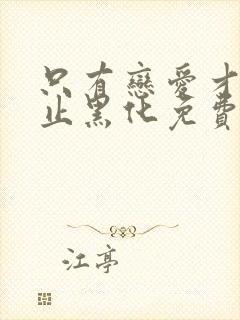 只有戀愛才
止黑化免費
江亭